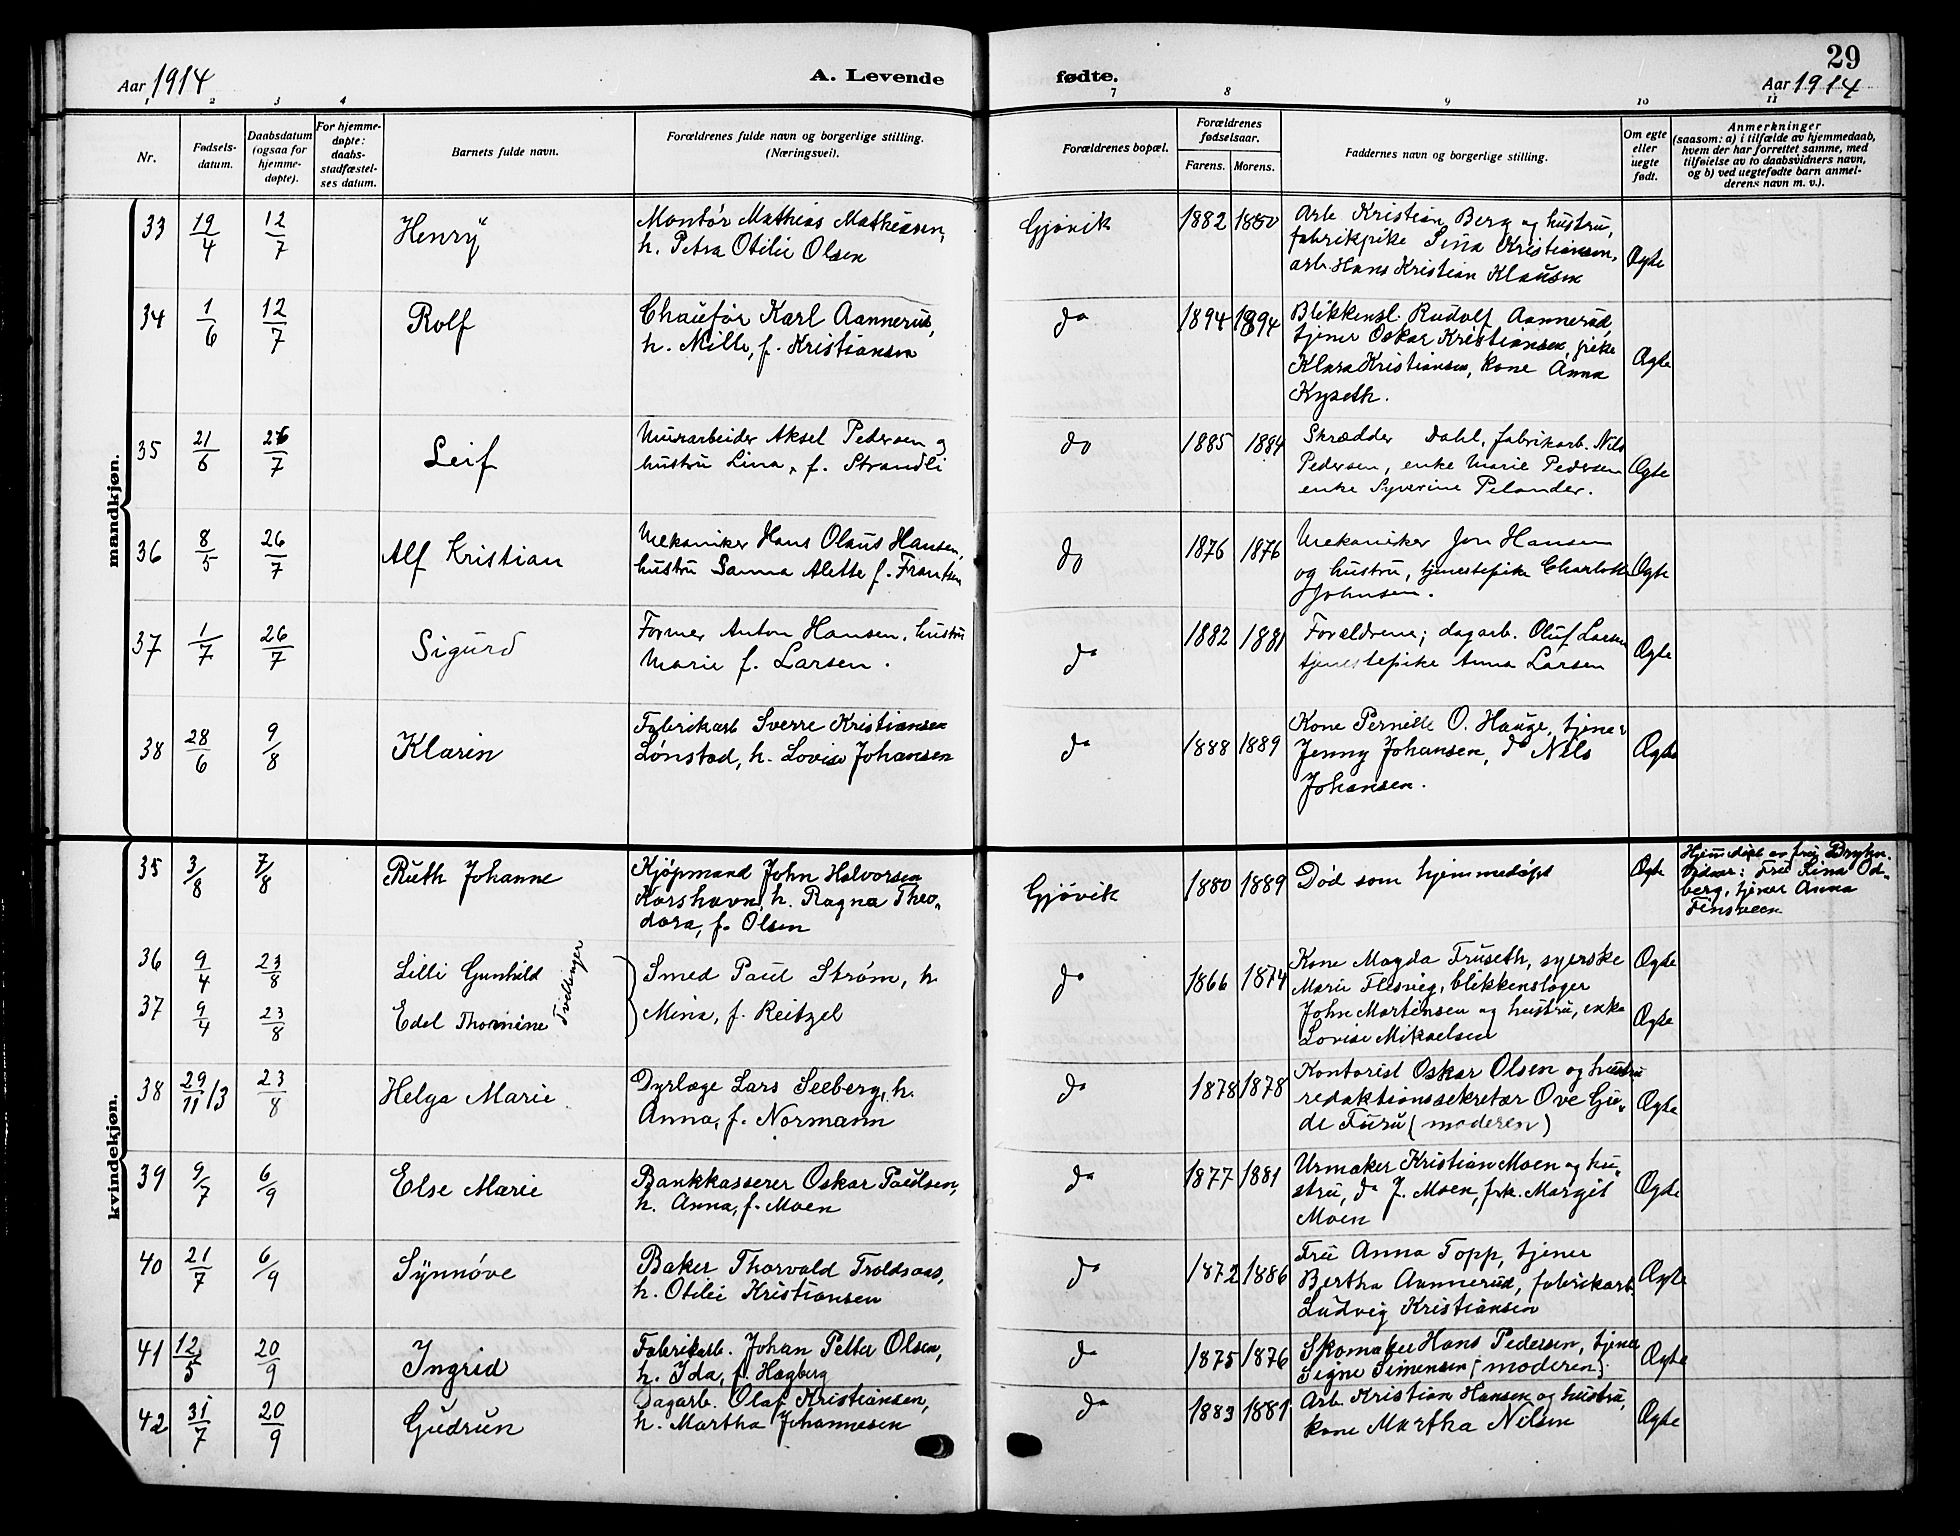 29
Aar 1914
A. Levende
fødte.
Aar 1914
1 2 3 4 7 8 9 10 11
Nr.
Fødsels-
datum.
Daabsdatum
(ogsaa for
hjemme-
døpte).
For hjemme-
døpte:
daabs-
stadfæstel-
ses datum.
Barnets fulde navn.
Forældrenes fulde navn og borgerlige stilling.
(Næringsvei).
Forældrenes bopæl.
Forældrenes
fødselsaar.
Farens. Morens.
Faddernes navn og borgerlige stilling.
Om egte
eller
uegte
født.
Anmerkninger
(saasom: a) i tilfælde av hjemmedaab,
hvem der har forrettet samme, med
tilføielse av to daabsvidners navn,
og b) ved uegtefødte barn anmel-
derens navn m. v.).
mandkjøn.
33 19/4 12/7 Henry
Montør Mathias Mathiesen,
h. Petra Otilie Olsen
Gjøvik 1882 1880
Arb. Kristian Berg og hustru,
fabrikpike Lina Kristiansen,
arb. Hans Kristian Klausen
Ægte
34 1/6 12/7 Rolf
Chaufør Karl Aannerud,
h. Milli, f. Kristiansen
do 1894 1894
Blikkensl. Rudolf Aannerud,
tjener Oskar Kristiansen, pike
Klara Kristiansen, kone Anna
Kyseth.
Ægte
35 21/6 26/7 Leif
Murarbeider Aksel Pedersen og
hustru Lina, f. Strandli
do 1885 1884
Skrædder Dahl, fabrikarb. Nils
Pedersen, enke Marie Pedersen
enke Syverine Pelander.
Ægte
36 8/5 26/7 Alf Kristian
Mekaniker Hans Olaus Hansen,
hustru Sanna Alette f. Frantsen
do 1876 1876
Mekaniker Jon Hansen
og hustru, tjenestepike Charlotte
Johnsen.
Ægte
37 1/7 26/7 Sigurd
Former Anton Hansen, hustru
Marie f. Larsen.
do 1882 1881
Forældrene; dagarb. Oluf Larsen
tjenestepike Anna Larsen
Ægte
38 28/6 9/8 Klarin
Fabrikarb Sverre Kristiansen
Lønstad, h. Lovise Johansen
do 1888 1889
Kone Pernille O. Hauge, tjener
Jenny Johansen, do Nils
Johansen.
Ægte
kvindekjøn.
35 3/8 7/8 Ruth Johanne
Kjøpmand John Halvorsen
Korshavn, h. Ragna Theo-
dora, f. Olsen
Gjøvik 1880 1889
Død som hjemmedøpt
Ægte
Hjemmedøpt av frk
Vidner: Fru Lina Od-
berg, tjener Anna
Finsveen
36 9/4 23/8 Lilli Gunhild
37 9/4 23/8 Edel Thomine
Tvillinger
Smed Paul Strøm, h
Mina, f. Reitzel
do 1866 1874
Kone Magda Fruseth, syerske
Marie Flesvig, blikkenslager
John Mortensen og hustru, enke
Lovise Mikaelsen
Ægte
Ægte
38 29/11 13 23/8 Helga Marie
Dyrlæge Lars Seeberg, h.
Anna, f. Normann
do 1878 1878
Kontorist Oskar Olsen og hustru
redaktionssekretær Ove Gu-
de Furu (moderen)
Ægte
39 9/7 6/9 Else Marie
Bankkasserer Oskar Paulsen,
h. Anna, f. Moen
do 1877 1881
Urmaker Kristian Moen og hu-
stru, do J. Moen, frk. Margit
Moen
Ægte
40 21/7 6/9 Synnøve
Baker Thorvald Troldsaas,
h. Otilie Kristiansen
do 1872 1886
Fru Anna Topp, tjener
Bertha Aannerud, fabrikarb.
Ludvig Kristiansen
Ægte
41 12/5 20/9 Ingrid
Fabrikarb. Johan Petter Olsen,
h. Ida, f. Hagberg
do 1875 1876
Skomaker Hans Pedersen, tjener
Signe Simensen (moderen).
Ægte
42 31/7 20/9 Gudrun
Dagarb. Olaf Kristiansen,
h. Martha Johannesen
do 1883 1881
Arb. Kristian Hansen og hustru,
kone Martha Nilsen
Ægte